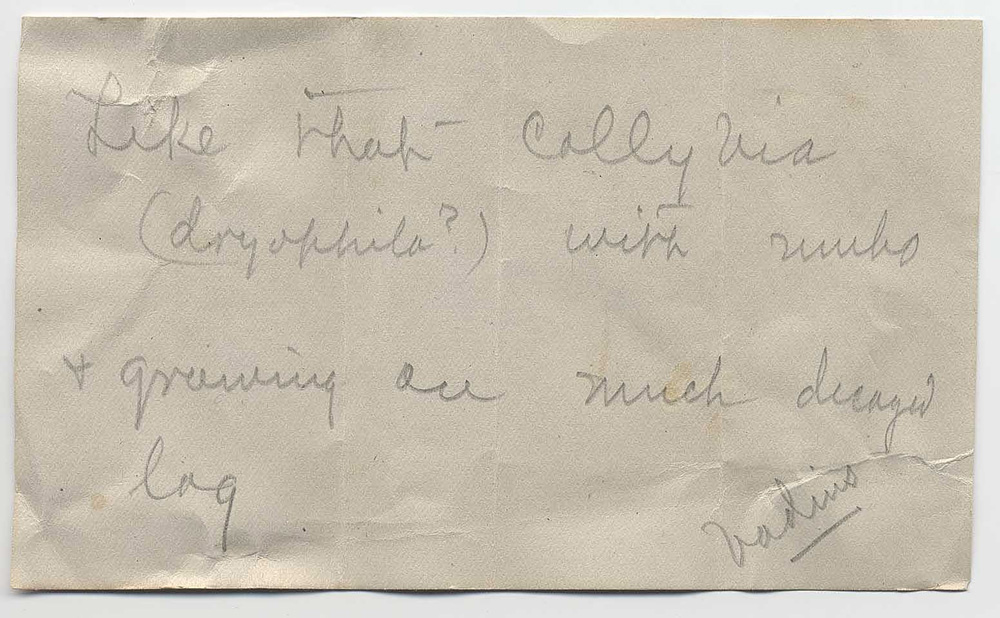 Like that Collybia
(dryophila?) with umbo
+ growing on much decayed
log